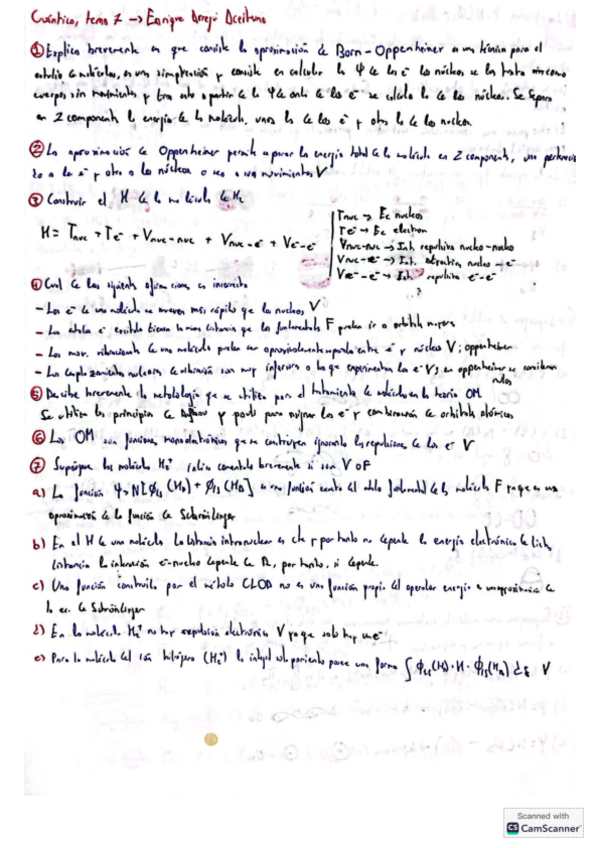 Cuántica, tema 7 → Enrique Arrejo Aceituno
① Explica brevemente en que consiste la aproximación de Born-Oppenheimer es una técnica para el
estudio de moléculas, es una simplificación y consiste en calcular la Ψ de los e⁻ los núcleos se les trata como
cuerpos sin movimiento y tras esto a partir de la Ψ de los e⁻ se calcula la de los núcleos. Se separa
en 2 componentes la energía de la molécula, una la de los e⁻ y otra la de los núcleos.
② La aproximación de Oppenheimer permite separar la energía total de la molécula en 2 componentes, una
a los e⁻ y otra a los núcleos o sea a sus movimientos V
③ Construir el H de la molécula de H₂
H = Tnuc + Te⁻ + Vnuc-nuc + Vnuc-e⁻ + Ve⁻-e⁻
Tnuc → Ec nucleo
Te⁻ → Ec electron
Vnuc-nuc → Int. repulsiva nucleo-nucleo
Vnuc-e⁻ → Int. atractiva nucleo-e⁻
Ve⁻-e⁻ → Int. repulsiva e⁻-e⁻
?
④ Cual de las siguientes afirmaciones es incorrecta
- Los e⁻ de una molécula se mueven mas rápido que los nucleos V
- Los estados e⁻ excitados tienen la misma que los fundamentales F pueden ir a orbitales mayores
- Los mov. vibracionales de una molécula pueden ser aproximadamente separados entre e⁻ y núcleos V; oppenheimer
- Los desplazamientos nucleares de vibración son muy inferiores a los que experimentan los e⁻ V; en oppenheimer se consideran
nulos
⑤ Describe brevemente la metodología que se utiliza para el tratamiento de moléculas en la teoría OM
Se utiliza los principios de aufbau y pauli para asignar los e⁻ y combinación de orbitales atómicos
⑥ Los OM son funciones monoelectrónicas que se construyen ignorando las repulsiones de los e⁻ V
⑦ Supóngase las moléculas H₂⁺ comentando brevemente si son V o F
a) La función Ψ=N[ϕ₁ₛ(Hₐ) + ϕ₁ₛ(H_B)] es una función exacta del estado fundamental de la molécula F ya que es una
aproximación de la función de Schrödinger
b) En el H de una molécula la distancia internuclear es cte y por tanto no depende la energía electrónica de dicha
distancia la interacción e⁻-nucleo depende de R, por tanto, si depende.
c) Una función construida por el método CLOA no es una función propia del operador energía es una aproximación de
la ec. de Schrödinger
d) En la molécula H₂⁺ no hay repulsión electrónica V ya que solo hay un e⁻
e) Para la molécula del ion (H₂⁺) la integral posee una forma ∫ϕ₁ₛ(Hₐ)·H·ϕ₁ₛ(Hₐ) V
Scanned with
CS CamScanner